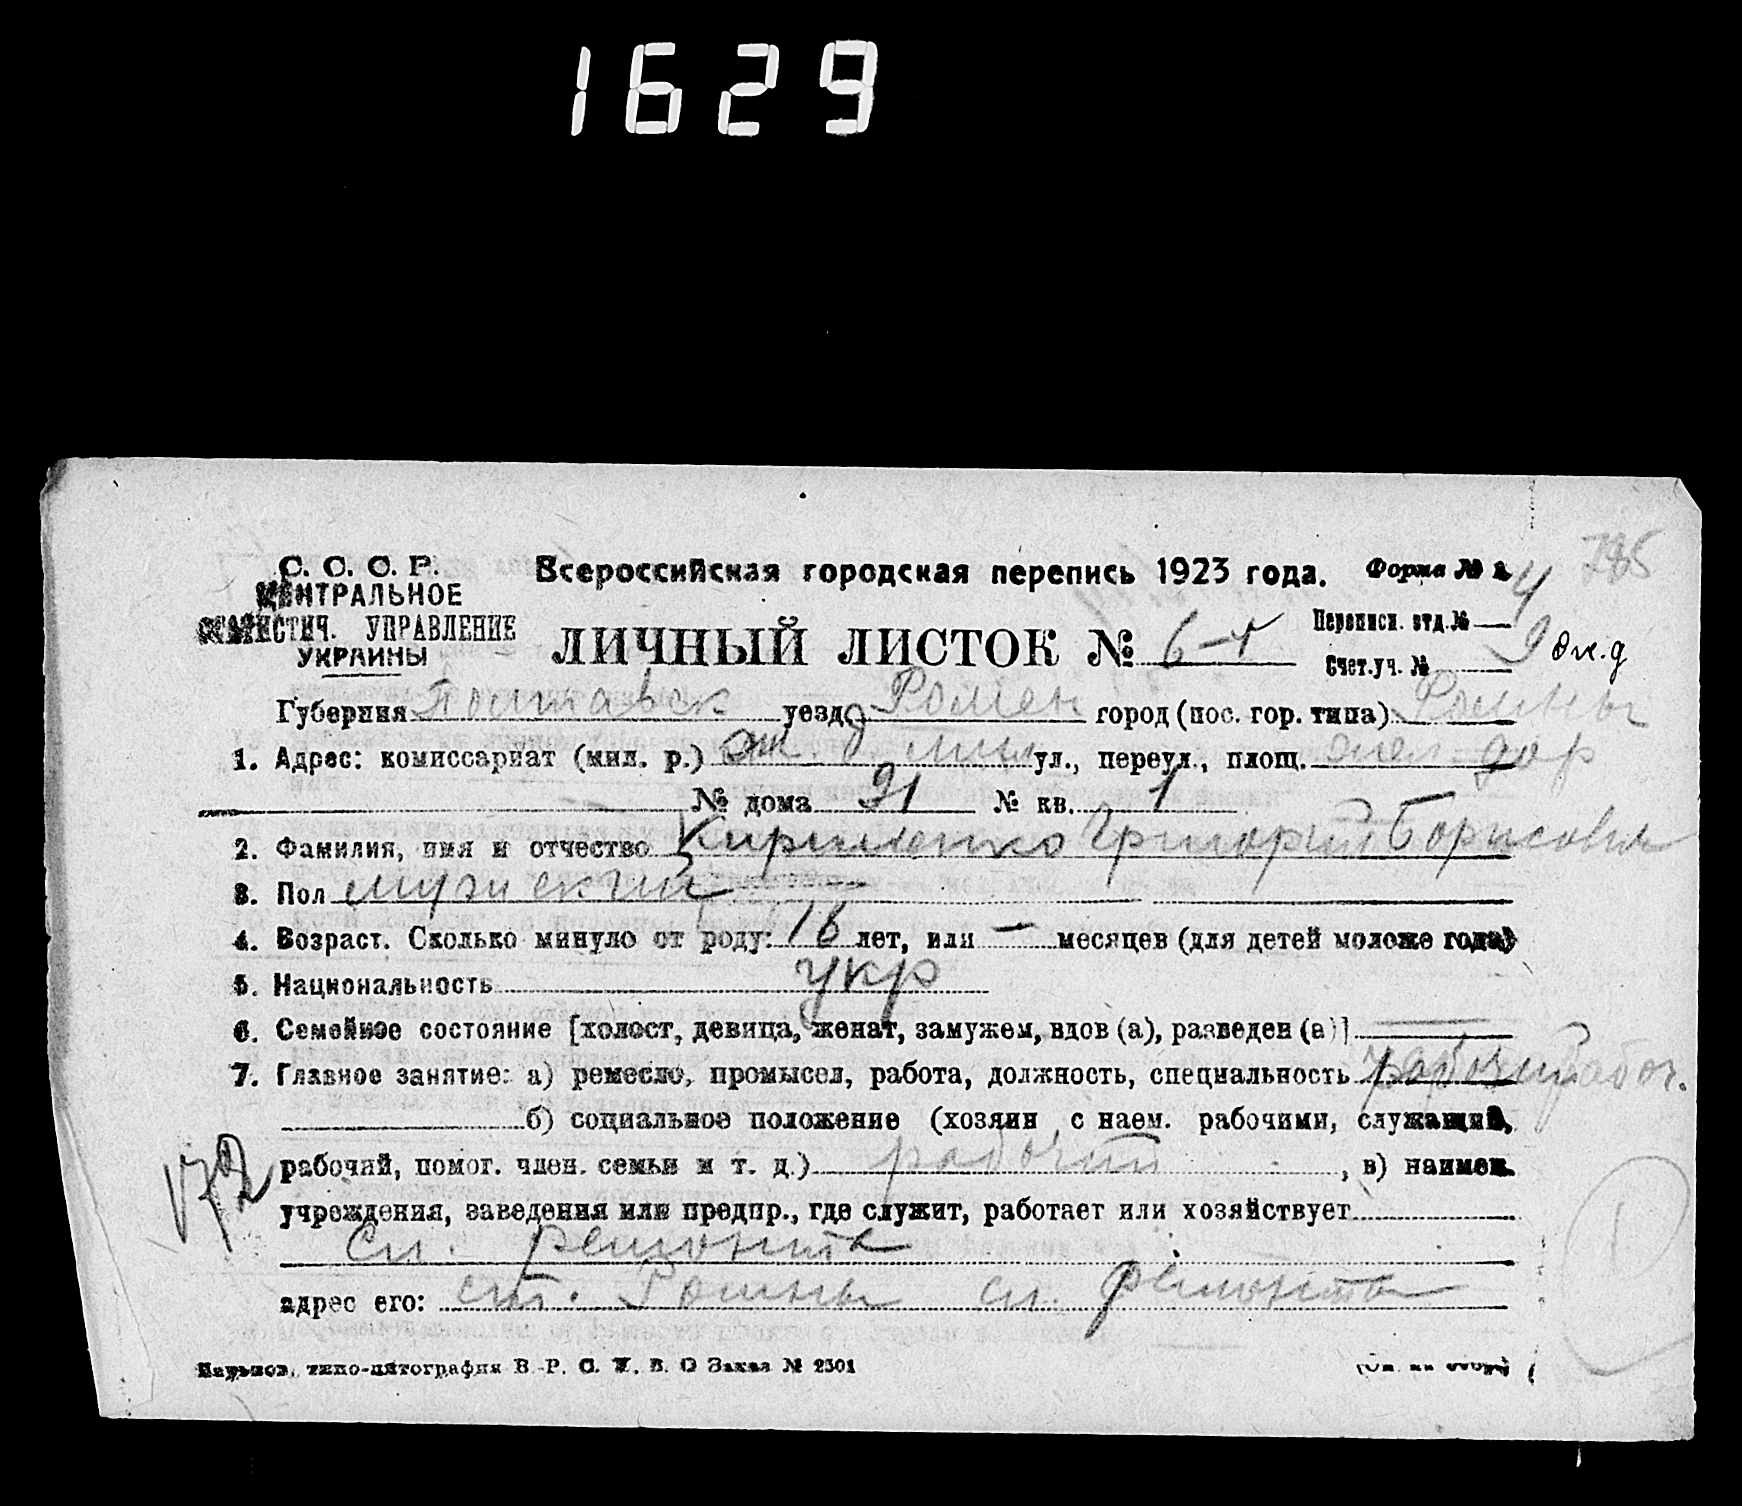 1629
785
С. С. С. Р.
ЦЕНТРАЛЬНОЕ
СТАТИСТИЧ. УПРАВЛЕНИЕ
УКРАИНЫ
Всероссийская городская перепись 1923 года. Форма № 2
ЛИЧНЫЙ ЛИСТОК № 6-
Переписн. отд. № 4
Счет. уч. № 9
Губерния Полтавск уезд Ромен город (пос. гор. типа) Ромны
1. Адрес: комиссариат (мил. р.) ул., переул., площ. жел дор
№ дома 91 № кв. 1
2. Фамилия, имя и отчество Кириленко Григорий Борисович
3. Пол мужский
4. Возраст. Сколько минуло от роду: 16 лет, или — месяцев (для детей моложе года)
5. Национальность укр
6. Семейное состояние [холост, девица, женат, замужем, вдов (а), разведен (а)] —
7. Главное занятие: а) ремесло, промысел, работа, должность, специальность рабочий рабоч.
б) социальное положение (хозяин с наем. рабочими, служащий,
рабочий, помог. член. семьи и т. д.) рабочий , в) наимен.
учреждения, заведения или предпр., где служит, работает или хозяйствует
сл. ремонта
адрес его: ст. Ромны сл. ремонта
172
Харьков, типо-литография В. Р. С. У. В. О Заказ № 2301